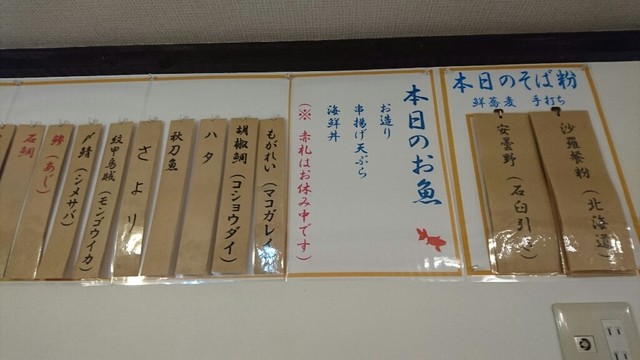 本日のそば粉
鮮蕎麦 手打ち
沙羅餐粉(北海道)
安曇野(石臼引き)
本日のお魚
お造り
串揚げ天ぷら
海鮮丼
(※ 赤札はお休み中です)
もがれい(マコガレイ
胡椒鯛(コショウダイ)
ハタ
秋刀魚
さより
紋甲烏賊(モンゴウイカ)
〆鯖(シメサバ)
鯵(あじ)
石鯛